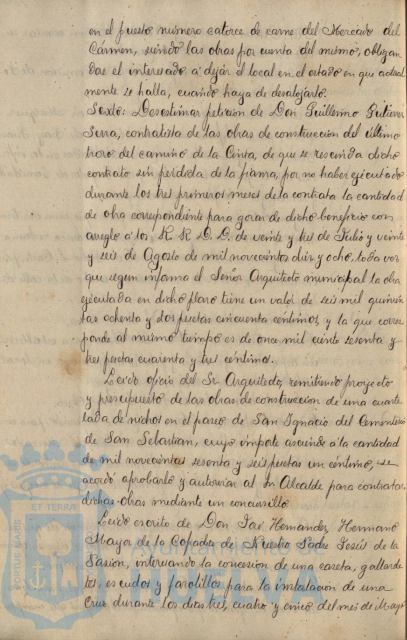 en el puesto número catorce de carne del Mercado del
Cármen, siendo las obras por cuenta del mismo, obligan-
dose el interesado á dejár el local en el estado en que actual
mente se halla, cuando haya de desalojarlo.
Sexto: Desestimar peticion de Don Guillermo Gutierrez
Serra, contratista de las obras de construcción del último
trozo del camino de la Cinta, de que se rescinda dicho
contrato sin perdida de la fianza, por no haber ejecutado
durante los tres primeros meses de la contrata la cantidad
de obra correspondiente para gozar de dicho beneficio con
arreglo á los R. R. D. D. de veinte y tres de Julio y veinte
y seis de Agosto de mil novecientos diez y ocho, toda vez
que segun informa el Señor Arquitecto municipal la obra
ejecutada en dicho plazo tiene un valor de seis mil quinien
tas ochenta y dos pesetas cincuenta centimos, y la que corres
ponde al mismo tiempo es de once mil ciento sesenta y
tres pesetas cuarenta y tres centimos.
Leido oficio del Sr. Arquitecto, remitiendo proyecto
y presupuesto de las obras de construccion de una cuarte
lada de nichos en el paseo de San Ignacio del Cementerio
de San Sebastian, cuyo importe asciende á la cantidad
de mil novecientas sesenta y seis pesetas un centimo, se
acordó aprobarlo y autorizar al Sr. Alcalde para contratar
dichas obras mediante un concursillo.
Leido escrito de Don José Hernandez, Hermano
Mayor de la Cofradia de Nuestro Padre Jesús de la
Pasion, interesando la concesion de una caseta, gallarde
tes, escudos y farolillos para la instalacion de una
Cruz durante los dias tres, cuatro y cinco del mes de Mayo
PORTUS MARIS
ET TERRAE
Ayuntamiento
HUELVA